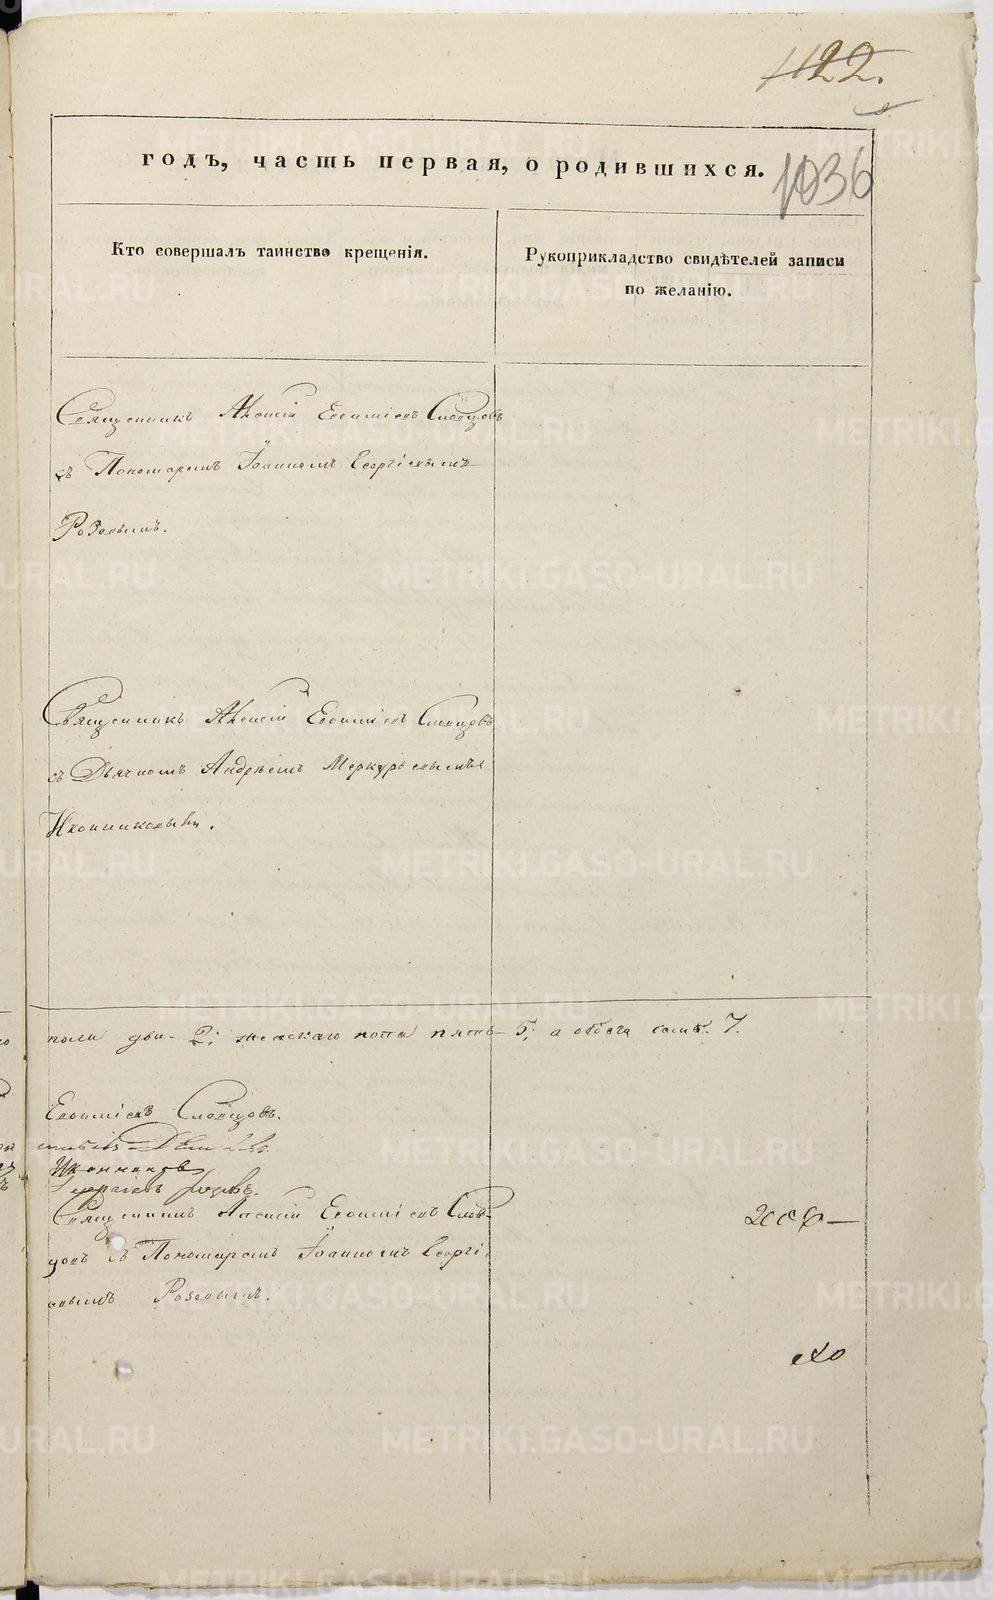 1122.
годъ, часть первая, о родившихся.
1036
Кто совершалъ таинство крещенія.
Рукоприкладство свидѣтелей записи
по желанію.
Священникъ Алексій Евѳиміевъ Словцовъ
съ Пономаремъ Іоанномъ Георгіевымъ
Розовымъ.
Священникъ Алексій Евѳиміевъ Словцовъ
съ Дьячкомъ Андреемъ Меркурьевымъ
Иконниковымъ.
пола два - 2; женскаго пола пять - 5; а обоего семь. 7.
Евѳиміевъ Словцовъ.
Иконниковъ
Георгіевъ Розовъ.
Священникъ Алексій Евѳиміевъ Слов-
цовъ съ Пономаремъ Іоанномъ Георгі-
евымъ Розовымъ.
METRIKI.GASO-URAL.RU